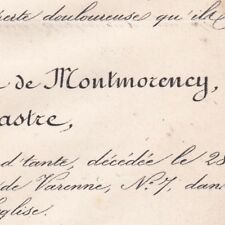 perte douloureuse qu'ils
de Montmorency,
astre,
d'tante, décédée le 28
de Varenne, N.º 7, dans
Eglise.